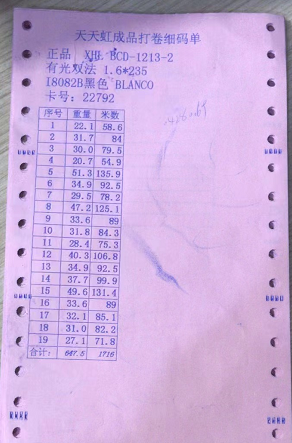 天天虹成品打卷细码单
正品 XHL BCD-1213-2
有光双法 1.6*235
I8082B黑色 BLANCO
卡号: 22792
序号 重量 米数
1 22.1 58.6
2 31.7 84
3 30.0 79.5
4 20.7 54.9
5 51.3 135.9
6 34.9 92.5
7 29.5 78.2
8 47.2 125.1
9 33.6 89
10 31.8 84.3
11 28.4 75.3
12 40.3 106.8
13 34.9 92.5
14 37.7 99.9
15 49.6 131.4
16 33.6 89
17 32.1 85.1
18 31.0 82.2
19 27.1 71.8
合计: 647.5 1716